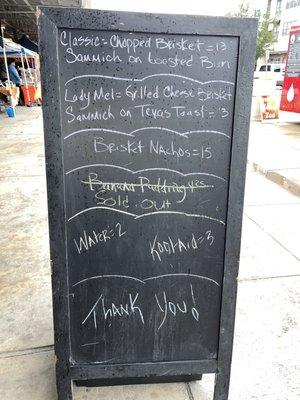 Classic = Chopped Brisket = 13
Sammich on toasted Bun
Lady Mel = Grilled Cheese Brisket
Sammich on Texas Toast = 13
Brisket Nachos = 15
Banana Pudding
Sold Out
Water = 2
Kool-aid = 3
Thank You!